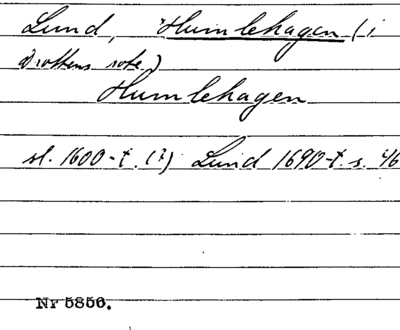 Lund, Humlehagen (i
Drottens rote)
Humlehagen
sl. 1600-t. (?) Lund 1690-t. s. 46
Nr 5856.